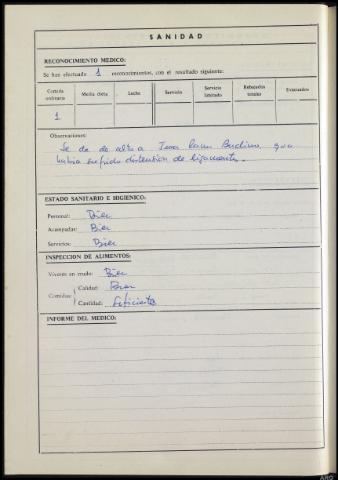 SANIDAD
RECONOCIMIENTO MEDICO:
Se han efectuado 1 reconocimientos, con el resultado siguiente:
Comida ordinaria Media dieta Leche Servicio Servicio limitado Rebajados totales Evacuados
1
Observaciones:
Se da de alta a que
había sufrido distensión de ligamentos.
ESTADO SANITARIO E HIGIENICO:
Personal: Bien
Acampadas: Bien
Servicios: Bien
INSPECCION DE ALIMENTOS:
Víveres en crudo: Bien
Comidas: Calidad: Bien
Cantidad: Suficiente
INFORME DEL MEDICO:
ARG